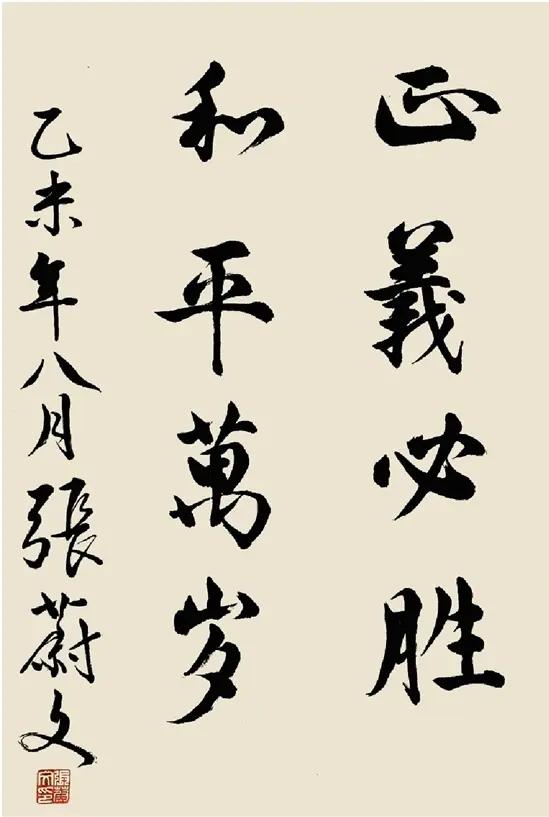 正義必胜
和平萬岁
乙未年八月張蔚文